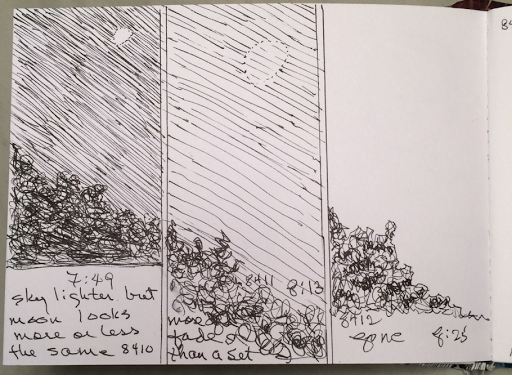 7:49
sky lighter but
moon looks
more or less
the same 8410
8411 8:13
more
faded
than a set
8412
gone 8:25
84